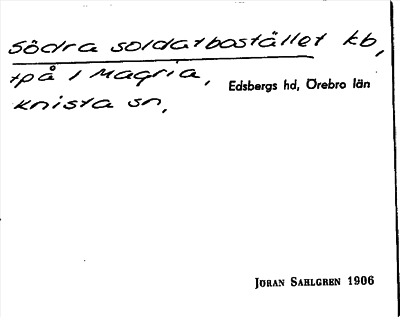 Södra soldatbostället kb,
tpå 1 Magria,
Edsbergs hd, Örebro län
Knista sn,
JÖRAN SAHLGREN 1906